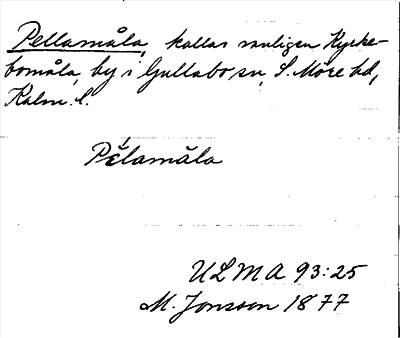 Pellamåla, kallas vanligen Kyrke-
bomåla, by i Gullabo sn, S. Möre hd,
Kalm. l.
Pĕ́lamåla
ULMA 93:25
M. Jonsson 1877